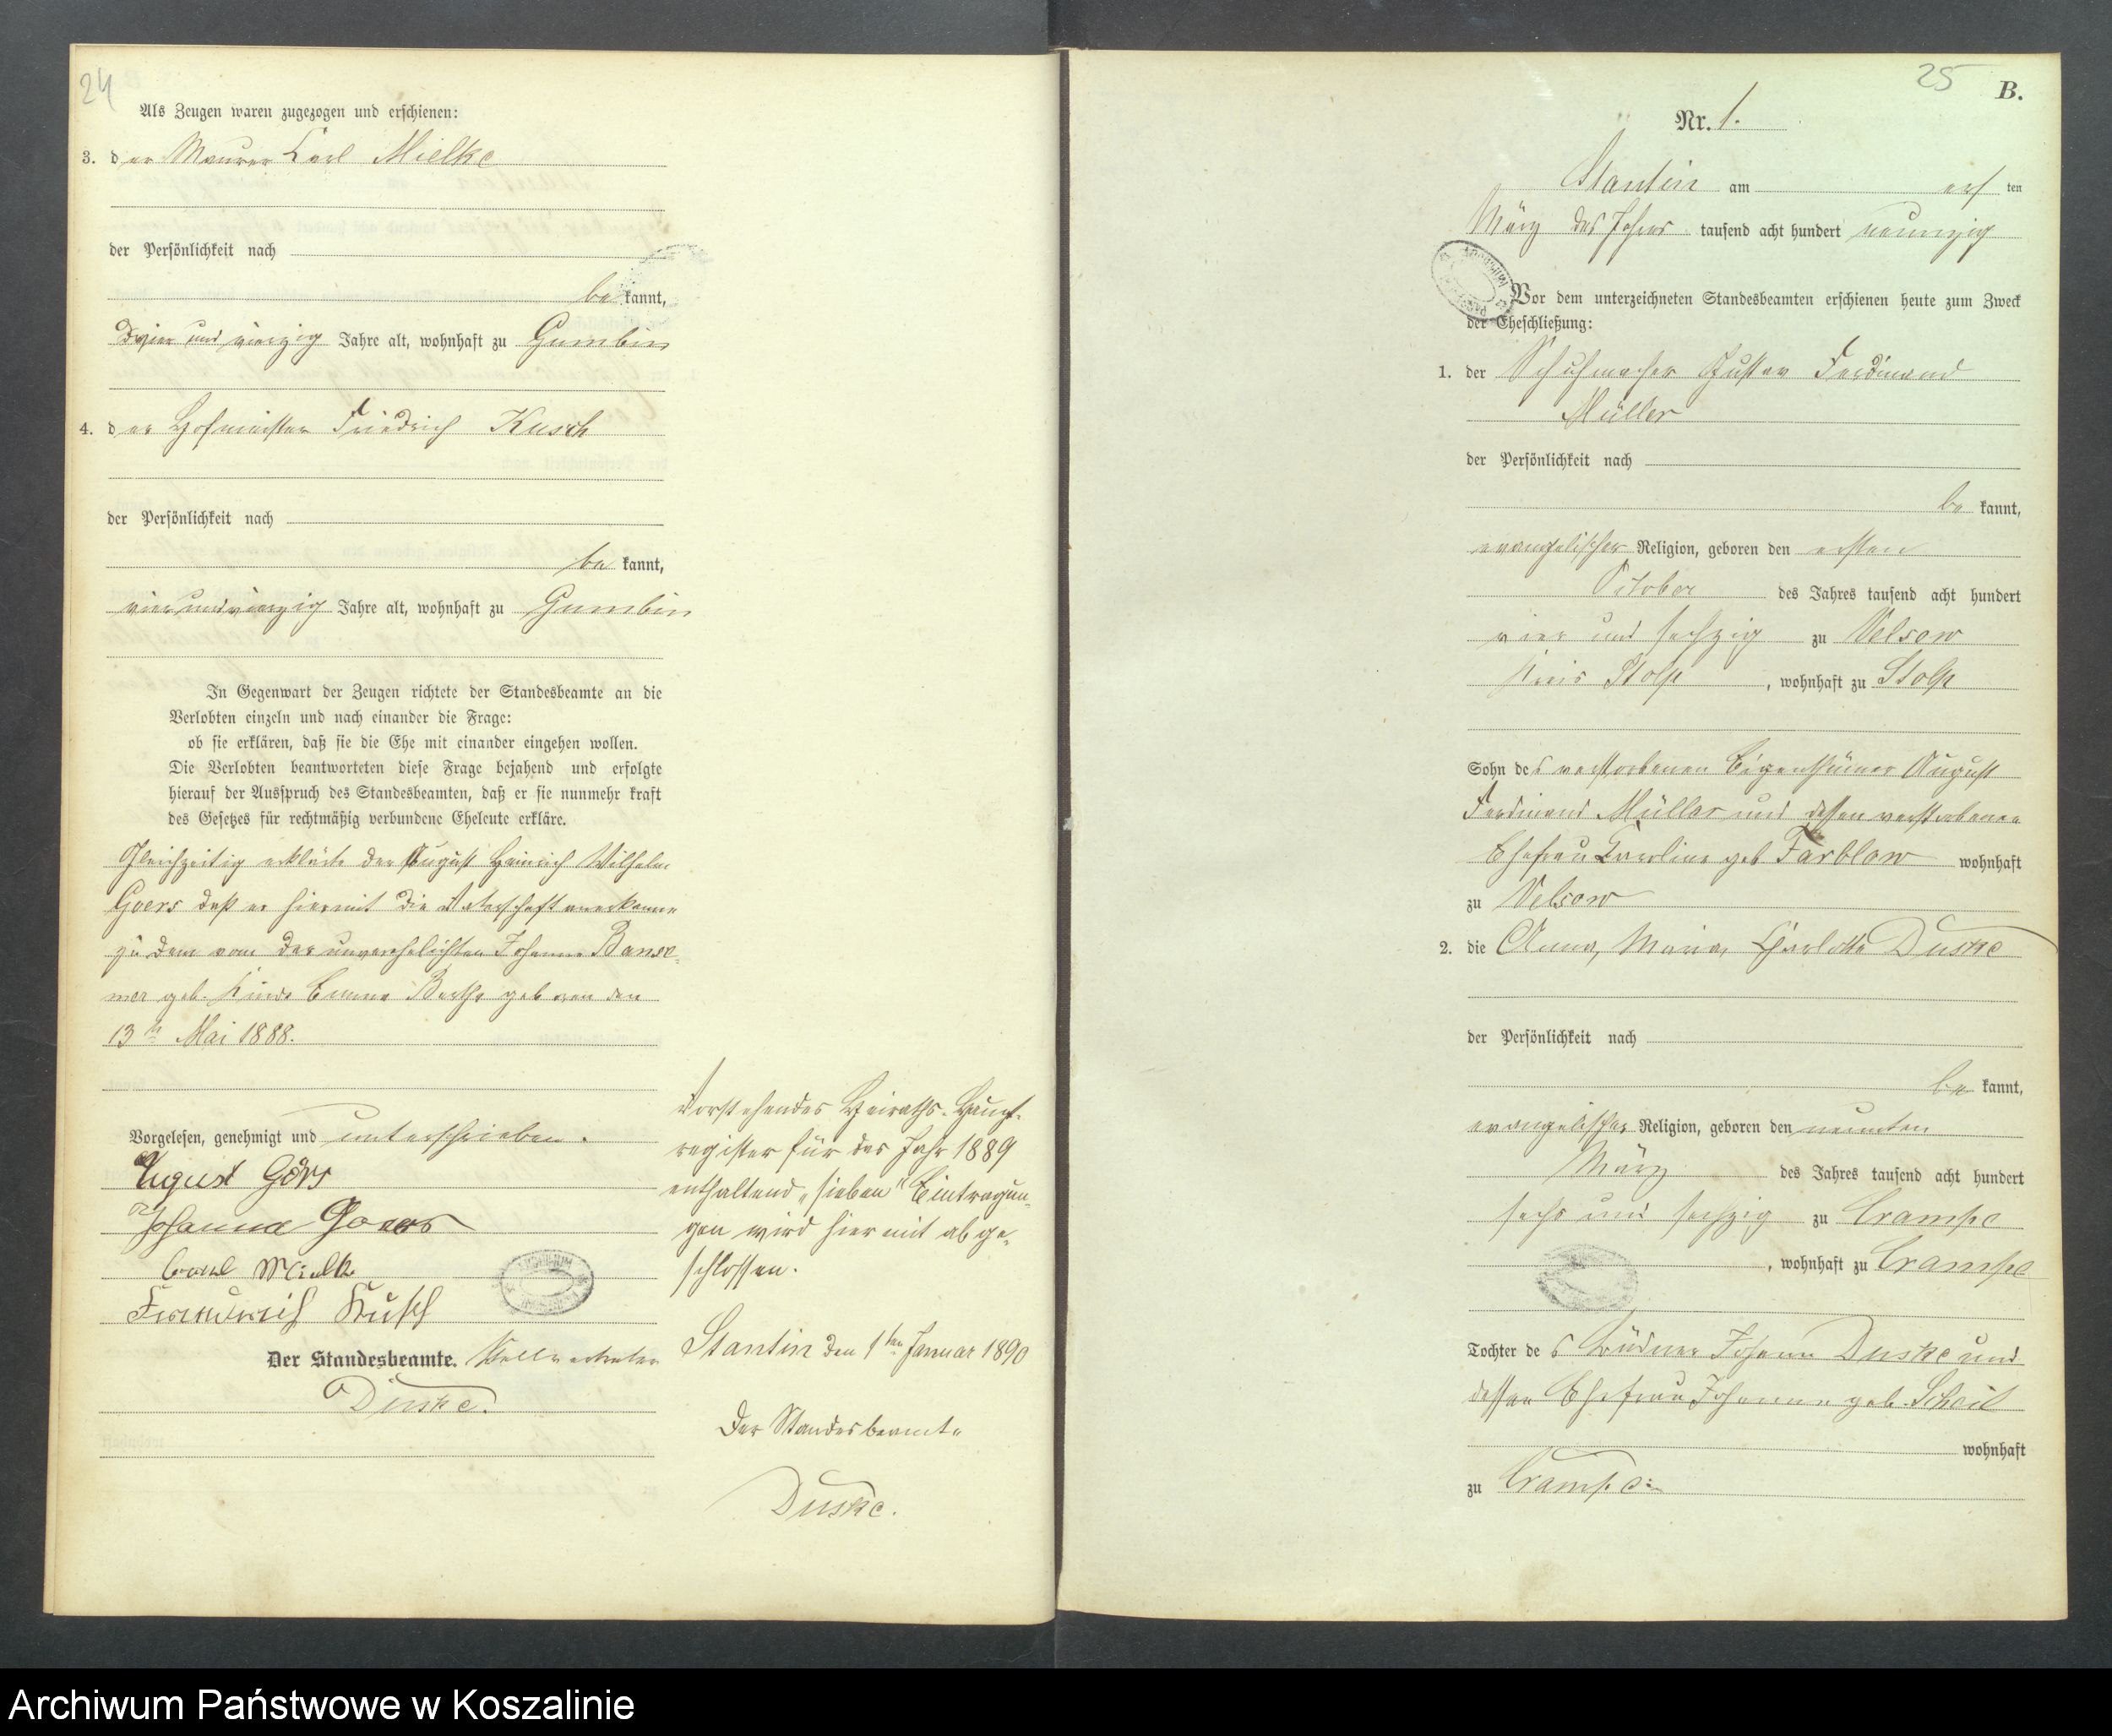 24
Als Zeugen waren zugezogen und erschienen:
3. der Maurer Carl Mielke
der Persönlichkeit nach
bekannt,
und vierzig Jahre alt, wohnhaft zu Gumbin
4. der Hofmeister Friedrich Kusch
der Persönlichkeit nach
bekannt,
vierundvierzig Jahre alt, wohnhaft zu Gumbin
In Gegenwart der Zeugen richtete der Standesbeamte an die
Verlobten einzeln und nach einander die Frage:
ob sie erklären, daß sie die Ehe mit einander eingehen wollen.
Die Verlobten beantworteten diese Frage bejahend und erfolgte
hierauf der Ausspruch des Standesbeamten, daß er sie nunmehr kraft
des Gesetzes für rechtmäßig verbundene Eheleute erkläre.
Gleichzeitig erklärte der August Heinrich Wilhelm
Goers daß er hiermit die Vaterschaft anerkenne
zu dem von der unverehelichten Johanne Banse-
mer geb. Kinde Emma Bertha geboren den
13ten Mai 1888.
Vorgelesen, genehmigt und unterschrieben.
August Görs
Johanna Goers
Carl Mielke
Friedrich Kusch
Der Standesbeamte.
Duske.
Vorstehendes Heiraths-Haupt-
register für das Jahr 1889
enthaltend „sieben" Eintragun-
gen wird hiermit abge-
schlossen.
Stantin den 1ten Januar 1890
Der Standesbeamte
Duske.
25
B.
Nr. 1.
Stantin am ersten
März des Jahres tausend acht hundert neunzig
Vor dem unterzeichneten Standesbeamten erschienen heute zum Zweck
der Eheschließung:
1. der Schuhmacher Gustav Ferdinand
Müller
der Persönlichkeit nach
bekannt,
evangelischer Religion, geboren den ersten
October des Jahres tausend acht hundert
vier und sechzig zu Velsow
Kreis Stolp, wohnhaft zu Stolp
Sohn des verstorbenen Eigenthümer August
Ferdinand Müller und dessen verstorbenen
Ehefrau Karoline geb Farblow wohnhaft
zu Velsow
2. die Anna, Maria, Charlotte Duske
der Persönlichkeit nach
bekannt,
evangelischer Religion, geboren den neunten
März des Jahres tausend acht hundert
sechs und sechzig zu Crampe
, wohnhaft zu Crampe
Tochter des Büdner Johann Duske und
dessen Ehefrau Johanne geb. Scheil
wohnhaft
zu Crampe
Archiwum Państwowe w Koszalinie